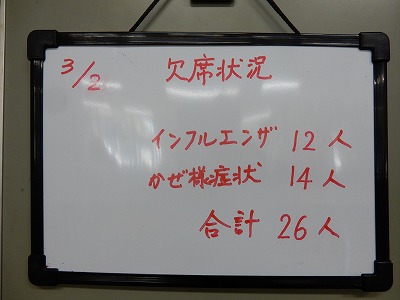 3/2 欠席状況
インフルエンザ 12人
かぜ様症状 14人
合計 26人